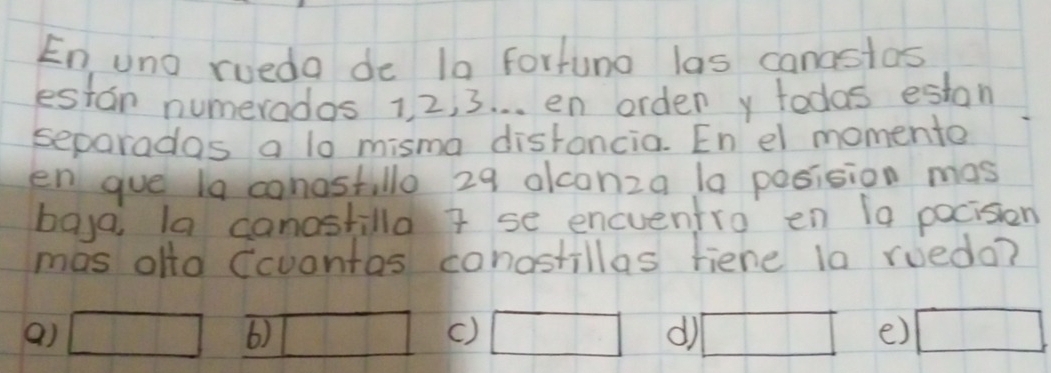 En una rueda de la fortuna las canastas
están numeradas 1,2,3... en orden y todas estan
separadas a la misma distancia. En el momento
en que la canastilla 29 alcanza la posision mas
baja, la canastilla 7 se encuentra en la pocision
mas alta ¿cuantas canastillas tiene la rueda?
a) b) c) d) e)